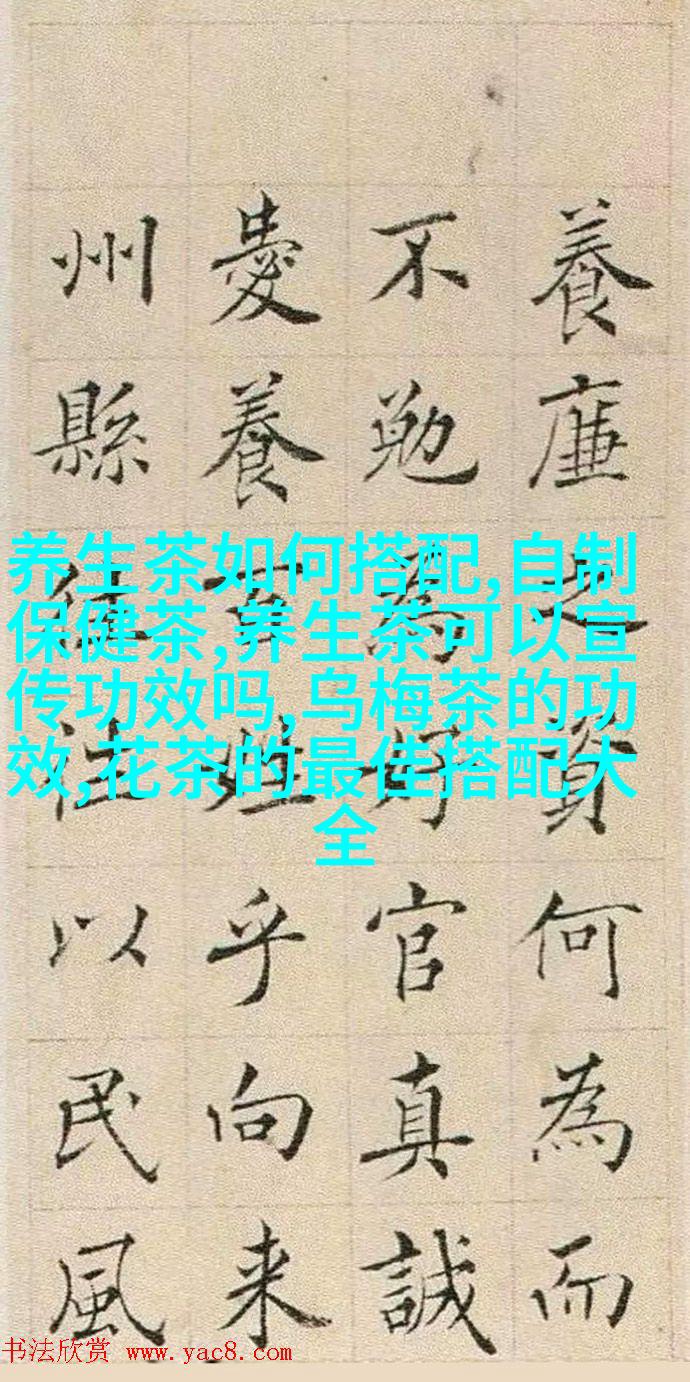 養廉之資何為而
不勉為好官真誠
愛養百姓乎向来
州縣往往以民風
养生茶如何搭配,自制
保健茶,养生茶可以宣
传功效吗,乌梅茶的功
效,花茶的最佳搭配大
全
书法欣赏 www.yac8.com